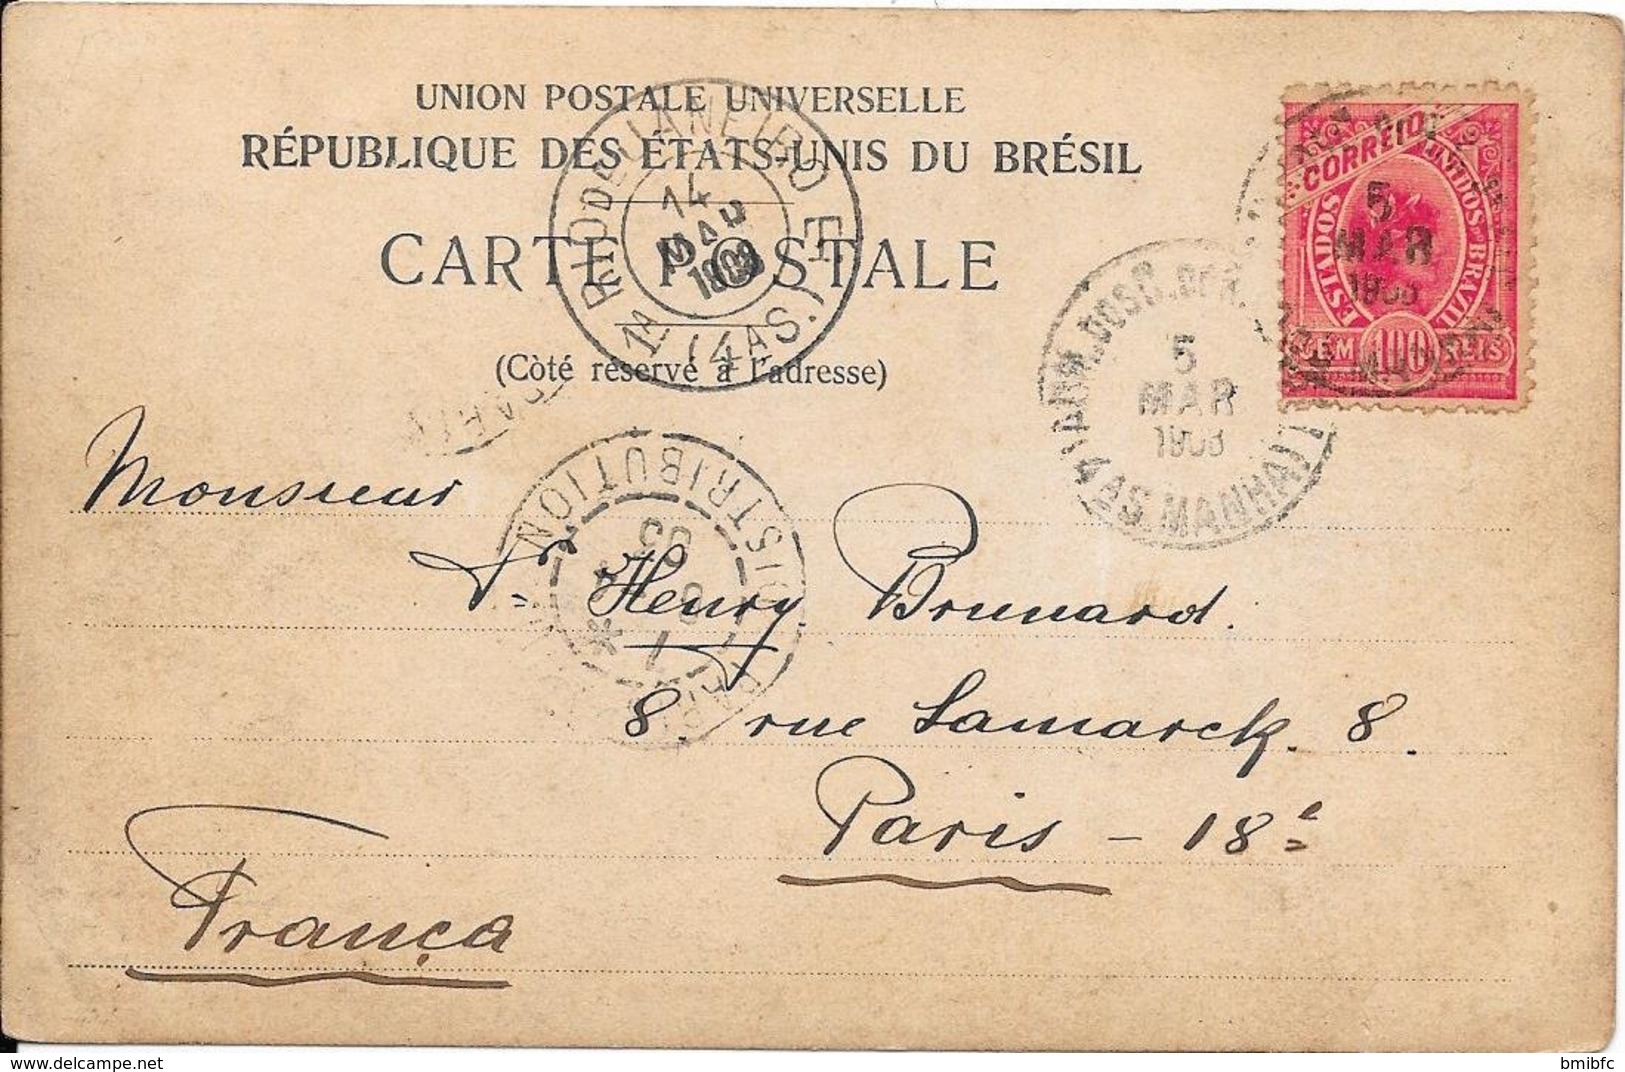 UNION POSTALE UNIVERSELLE
RÉPUBLIQUE DES ÉTATS-UNIS DU BRÉSIL
CARTE POSTALE
(Còté réservé à l'adresse)
RIO DE JANEIRO E
14
MAR
1ª (4 AS.)
CORREIO
ESTADOS UNIDOS DO BRAZIL
CEM 100 REIS
5
MAR
5
MAR
4 AS. MANHA
DISTRIBUTION
Monsieur
Dr. Henry Brunard.
8. rue Lamarck. 8.
Paris - 18e
França
bmibfc